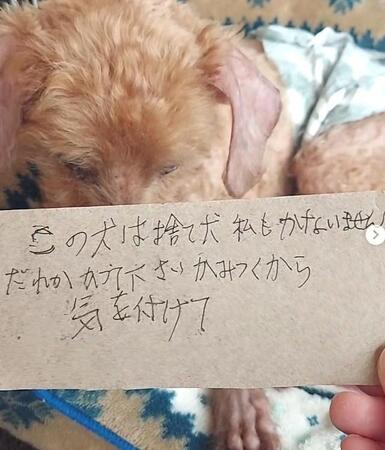 この犬は捨て犬 私もかけないません
だれかかってください かみつくから
気を付けて